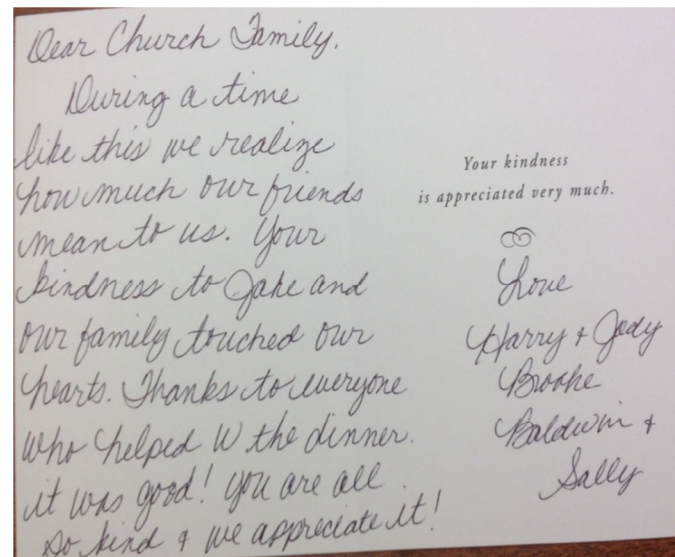 Dear Church Family,
During a time
like this we realize
how much our friends
mean to us. Your
kindness to Jake and
our family touched our
hearts. Thanks to everyone
who helped W the dinner.
it was good! you are all
so kind & we appreciate it!
Your kindness
is appreciated very much.
Love
Harry & Jody
Brooke
Baldwin &
Sally